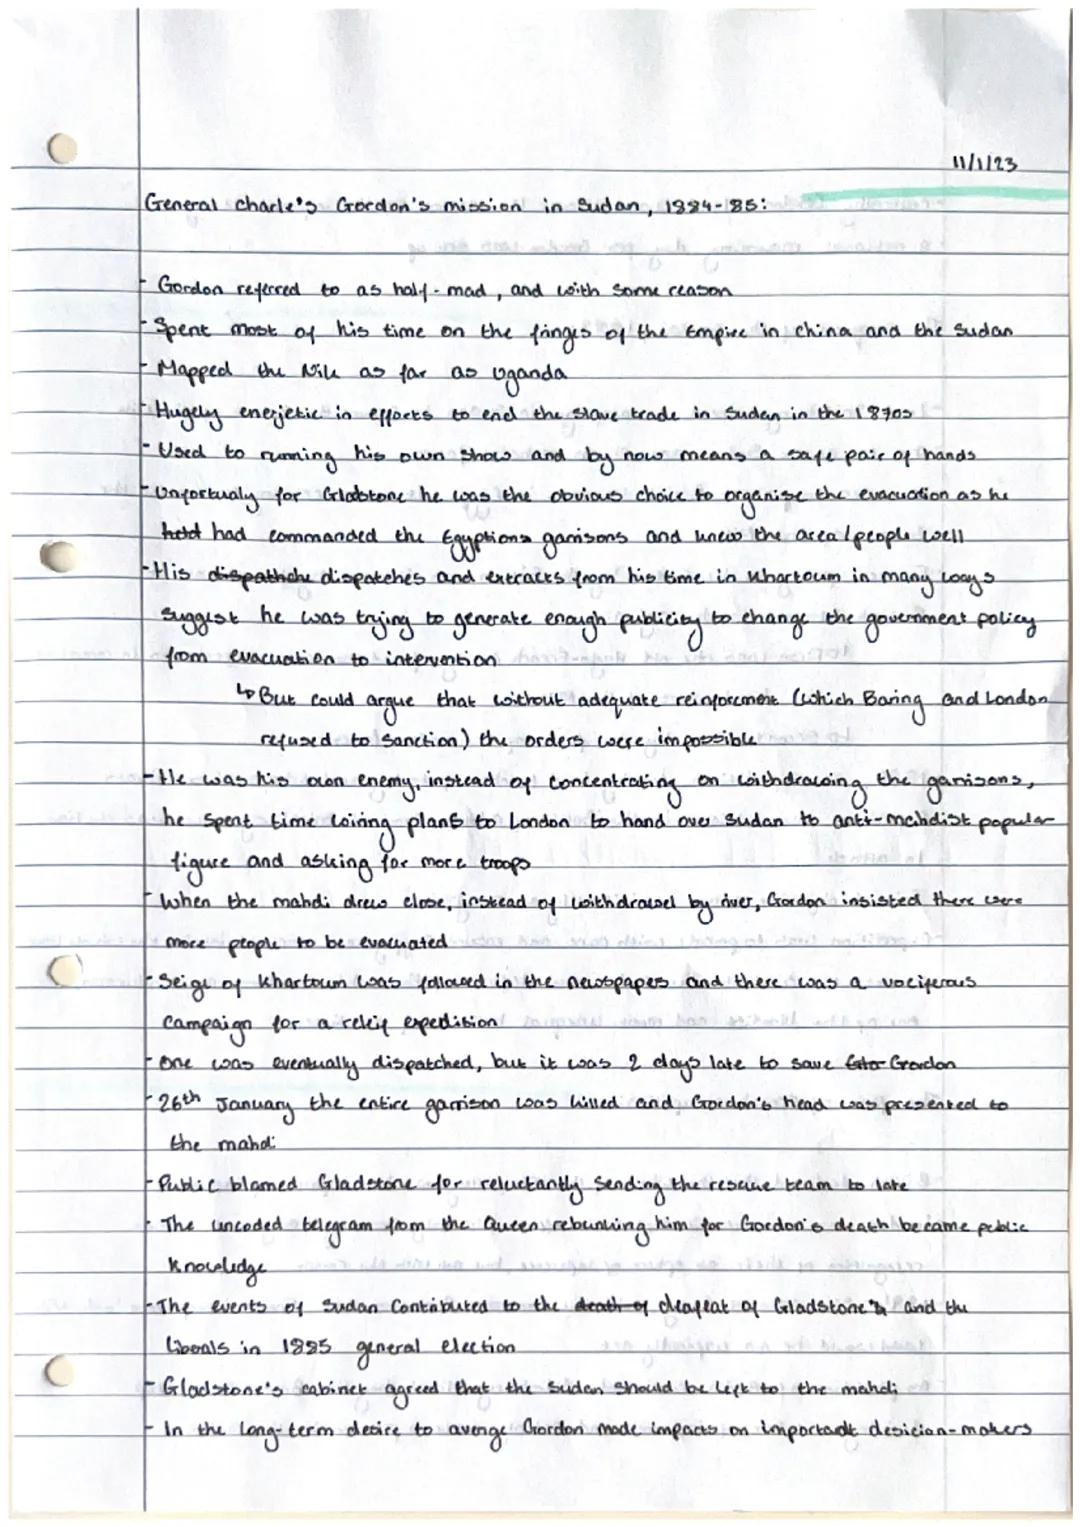 11/1/23
General charle's Gordon's mission in Sudan, 1884-85:
- Gordon referred to as half-mad, and with some reason
- Spent most of his time on the fringes of the Empire in china and the Sudan
- Mapped the Nile as far as Uganda
- Hugely enerjetic in efforts to end the slave trade in Sudan in the 1870s
- Used to running his own show and by now means a safe pair of hands
- Unfortualy for Gladstone he was the obvious choice to organise the evacuation as he
had had commanded the Egyptians garrisons and knew the area/people well
- His dispathche dispatches and extracts from his time in Khartoum in many ways
suggest he was trying to generate enough publicity to change the government policy
from evacuation to intervention
↳ But could argue that without adequate reinforcment (which Baring and London
refused to sanction) the orders were impossible
- He was his own enemy, instead of concentrating on withdrawing the garrisons,
he spent time wiring plans to London to hand over Sudan to anti-mahdist popular
figure and asking for more troops
- When the mahdi drew close, instead of withdrawel by river, Gordon insisted there were
more people to be evacuated
- Seige of Khartoum was followed in the newspapers and there was a vociferous
campaign for a releif expedition
- One was eventually dispatched, but it was 2 days late to save Gordon
- 26th January the entire garrison was killed and Gordon's head was presented to
the mahdi
- Public blamed Gladstone for reluctantly sending the rescue team to late
- The uncoded telegram from the Queen rebunking him for Gordon's death became public
knowledge
- The events of Sudan contributed to the death of deafeat of Gladstone's and the
liberals in 1885 general election
- Gladstone's cabinet agreed that the Sudan should be left to the mahdi
- In the long-term desire to avenge Gordon made impacts on important desicion-makers